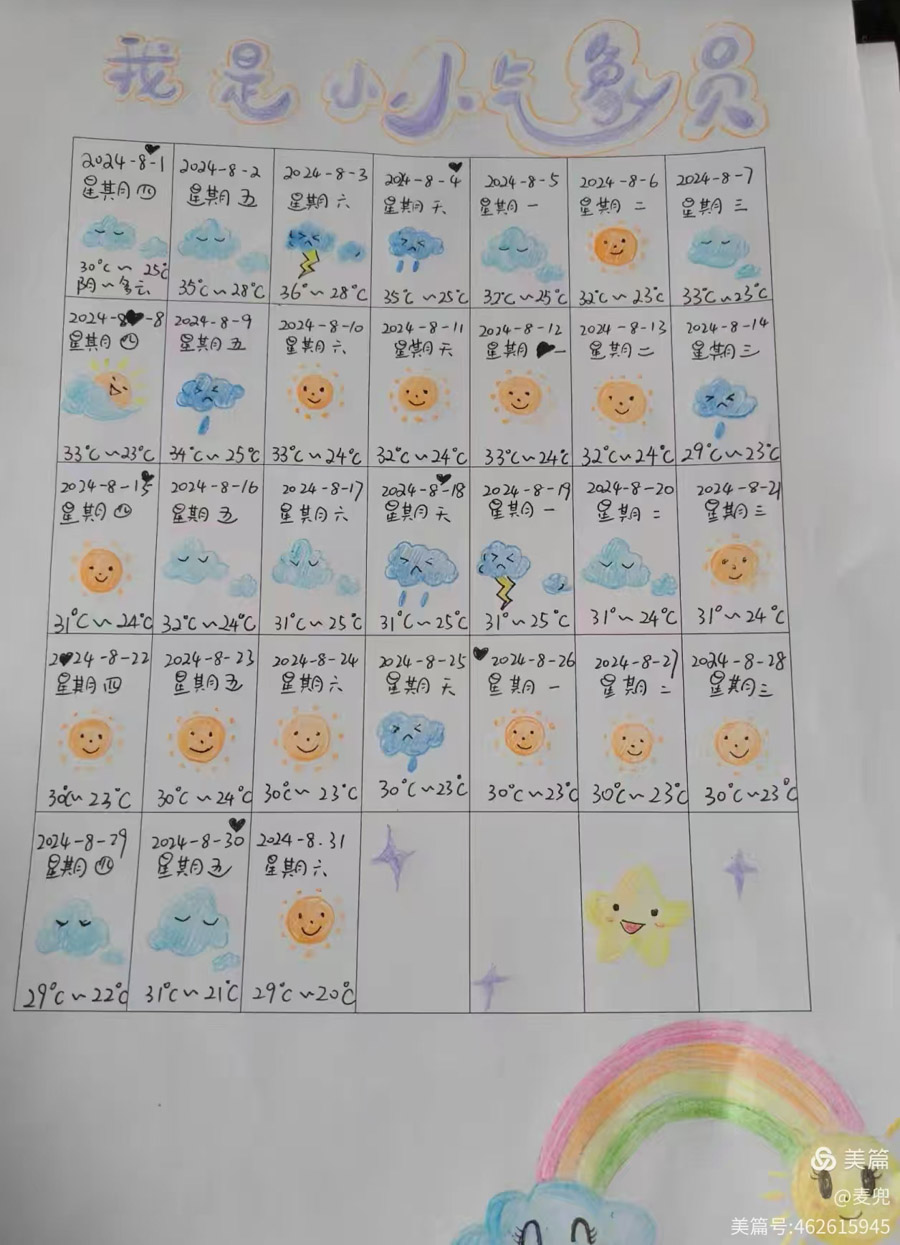 我是小小气象员
2024-8-1
星期四
30℃~25℃
阴~多云
2024-8-2
星期五
35℃~28℃
2024-8-3
星期六
36°~28℃
2024-8-4
星期天
35℃~25℃
2024-8-5
星期一
~25℃
2024-8-6
星期二
32℃~23℃
2024-8-7
星期三
33℃~23℃
2024-8-8
星期四
33℃~23℃
2024-8-9
星期五
34℃~25℃
2024-8-10
星期六
33℃~24℃
2024-8-11
星期天
32℃~24℃
2024-8-12
星期一
33℃~24℃
2024-8-13
星期二
32℃~24℃
2024-8-14
星期三
29℃~23℃
2024-8-15
星期四
31℃~24℃
2024-8-16
星期五
32℃~24℃
2024-8-17
星期六
31℃~25℃
2024-8-18
星期天
31℃~25℃
2024-8-19
星期一
31°~25℃
2024-8-20
星期二
31°~24℃
2024-8-21
星期三
31°~24℃
2024-8-22
星期四
30℃~23℃
2024-8-23
星期五
30℃~24℃
2024-8-24
星期六
30℃~23℃
2024-8-25
星期天
30℃~23℃
2024-8-26
星期一
30℃~23℃
2024-8-27
星期二
30℃~23℃
2024-8-28
星期三
30℃~23℃
2024-8-29
星期四
29℃~22℃
2024-8-30
星期五
31℃~21℃
2024-8.31
星期六
29℃~20℃
美篇
@麦兜
美篇号:462615945